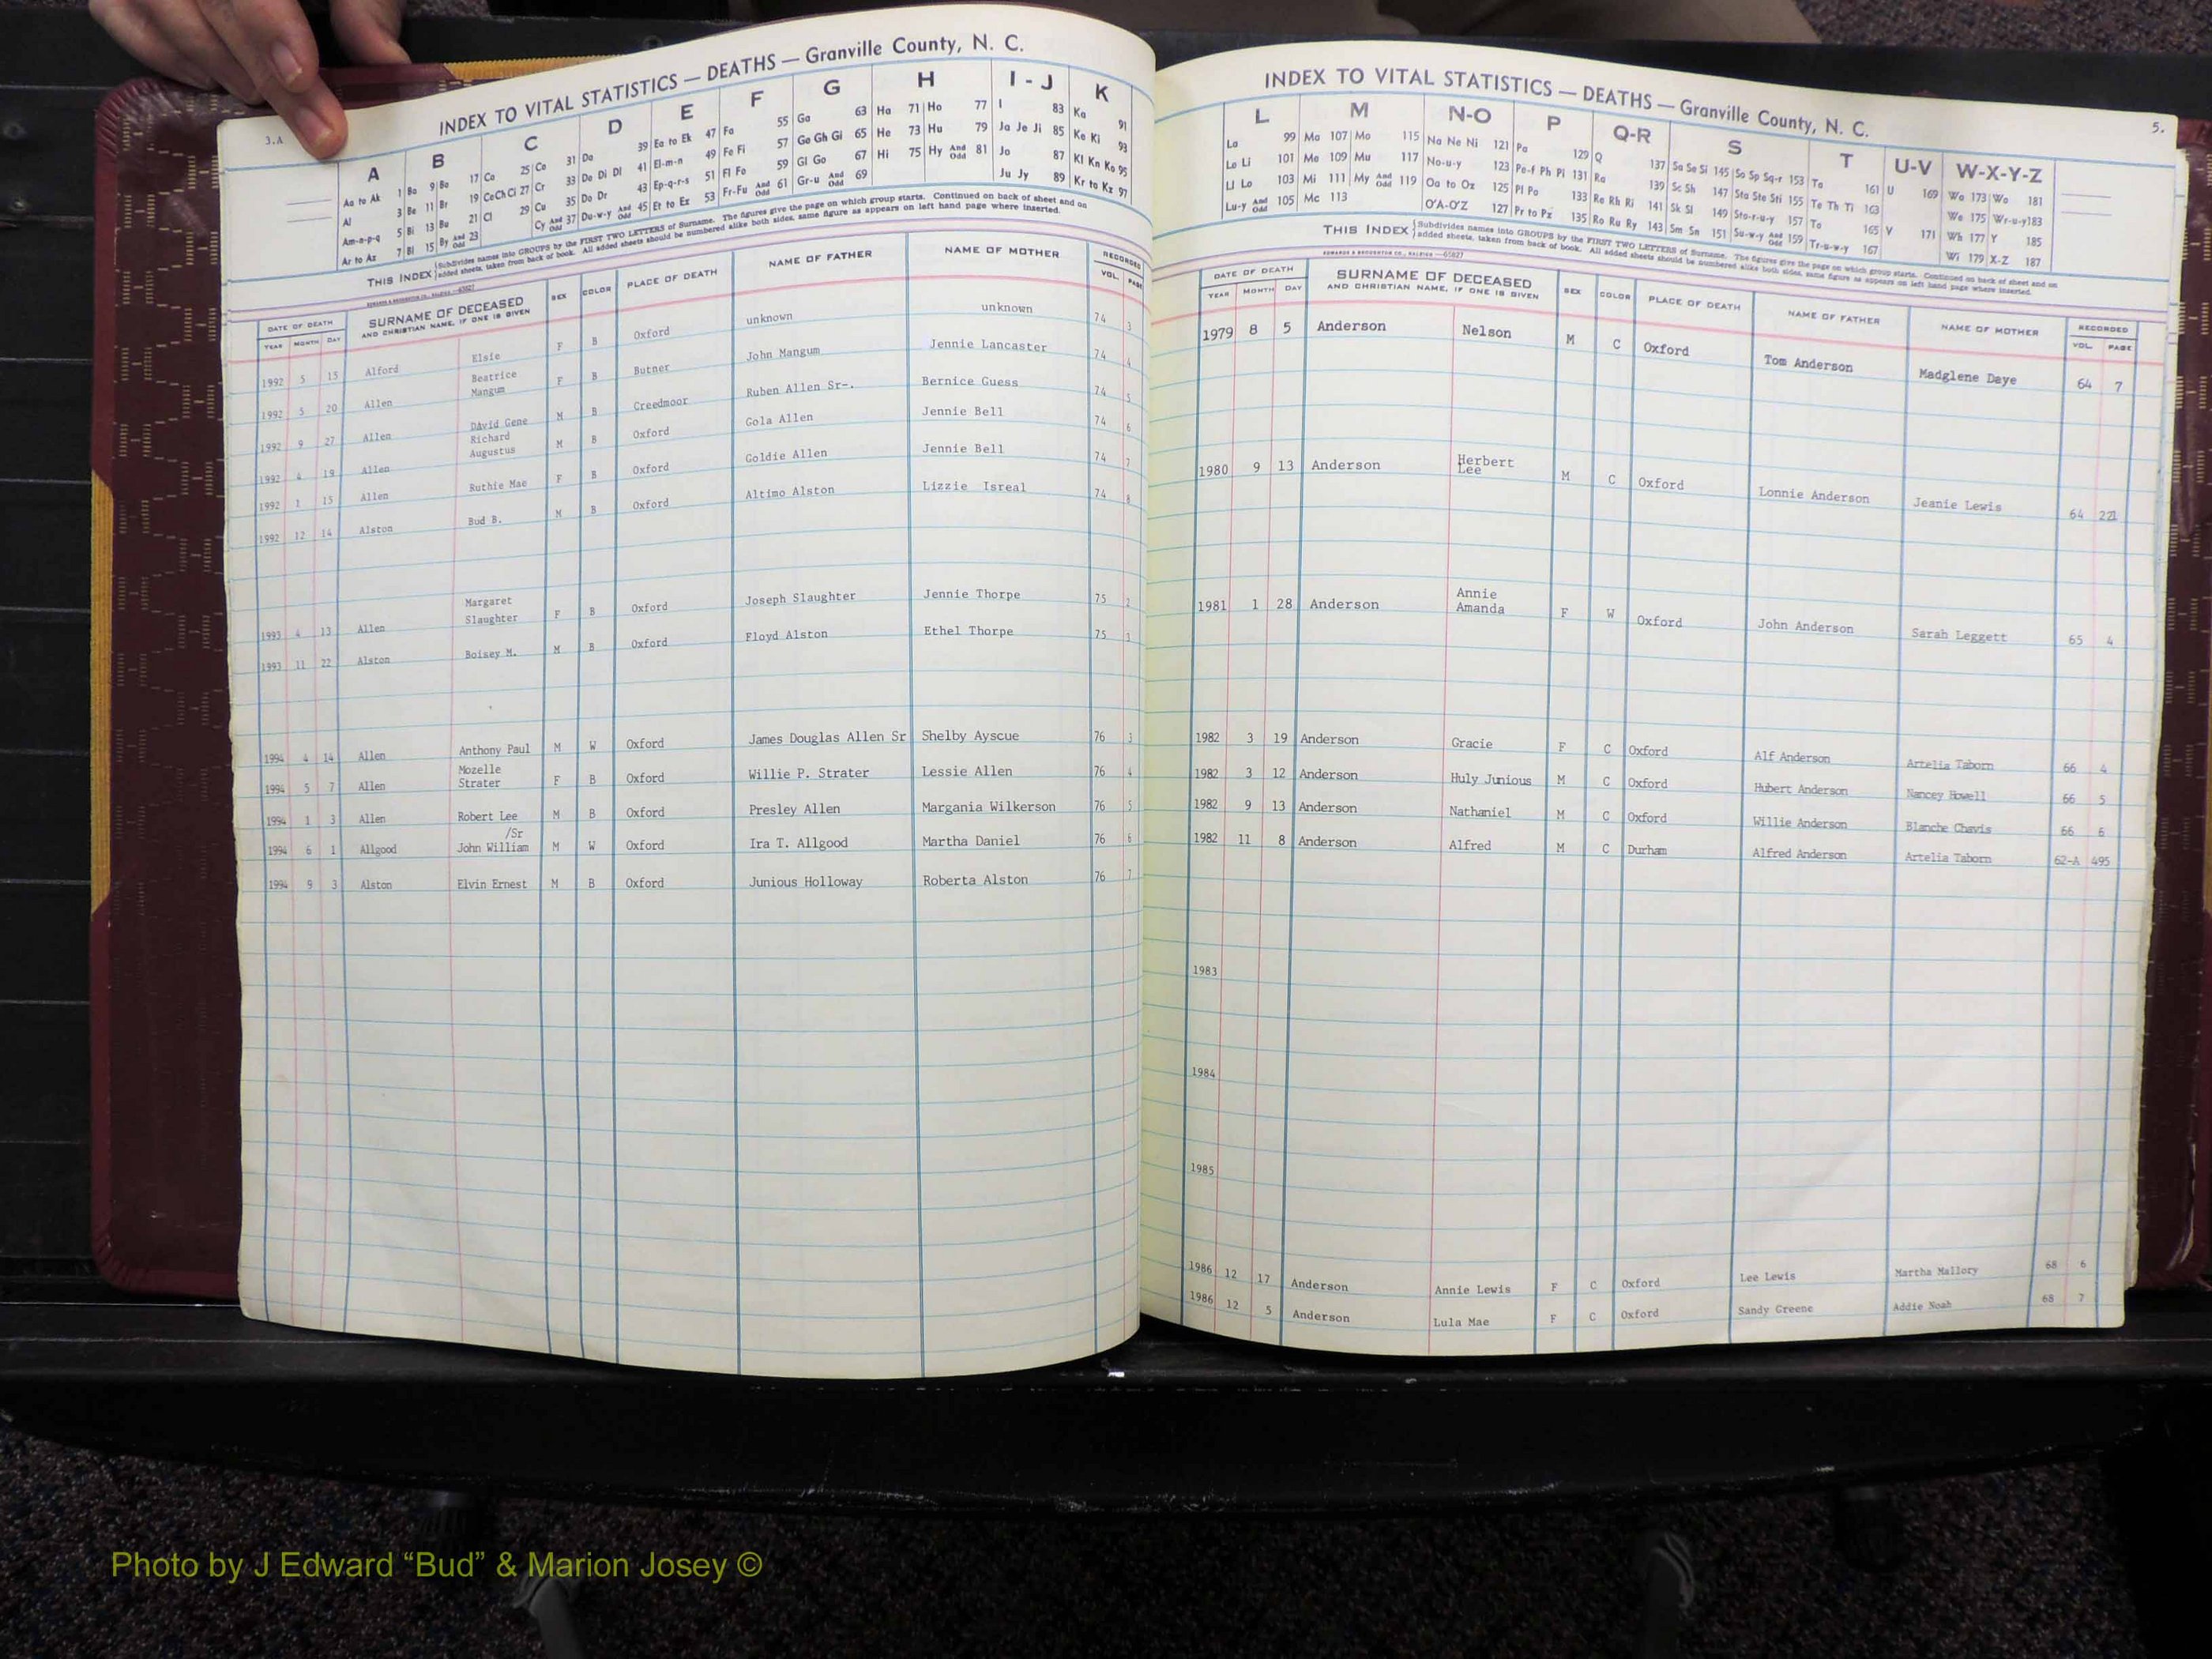 3.A
INDEX TO VITAL STATISTICS — DEATHS — Granville County, N. C.
A B C D E F G H I - J K
Aa to Ak 1 Ba 9 Bo 17 Ca 25 Co 31 Da 39 Ea to Ek 47 Fa 55 Ga 63 Ha 71 Ho 77 I 83 Ka 91
Al 3 Be 11 Br 19 Ce Ch Ci 27 Cr 33 De Di Dl 41 El-m-n 49 Fe Fi 57 Ge Gh Gi 65 He 73 Hu 79 Ja Je Ji 85 Ke Ki 93
Am-n-p-q 5 Bi 13 Bu 21 Cl 29 Cu 35 Do Dr 43 Ep-q-r-s 51 Fl Fo 59 Gl Go 67 Hi 75 Hy And Odd 81 Jo 87 Kl Kn Ko 95
Ar to Az 7 Bl 15 By And Odd 23 Cy And Odd 37 Du-w-y And Odd 45 Et to Ez 53 Fr-Fu And Odd 61 Gr-u And Odd 69 Ju Jy 89 Kr to Kz 97
THIS INDEX {Subdivides names into GROUPS by the FIRST TWO LETTERS of Surname. The figures give the page on which group starts. Continued on back of sheet and on
added sheets, taken from back of book. All added sheets should be numbered alike both sides, same figure as appears on left hand page where inserted.
DATE OF DEATH SURNAME OF DECEASED SEX COLOR PLACE OF DEATH NAME OF FATHER NAME OF MOTHER RECORDED
YEAR MONTH DAY AND CHRISTIAN NAME, IF ONE IS GIVEN VOL. PAGE
1992 5 15 Alford Elsie F B Oxford unknown unknown 74 3
1992 5 20 Allen Beatrice Mangum F B Butner John Mangum Jennie Lancaster 74 4
1992 9 27 Allen DAvid Gene M B Creedmoor Ruben Allen Sr-. Bernice Guess 74 5
1992 4 19 Allen Richard Augustus M B Oxford Gola Allen Jennie Bell 74 6
1992 1 15 Allen Ruthie Mae F B Oxford Goldie Allen Jennie Bell 74 7
1992 12 14 Alston Bud B. M B Oxford Altimo Alston Lizzie Isreal 74 8
1993 4 13 Allen Margaret Slaughter F B Oxford Joseph Slaughter Jennie Thorpe 75 2
1993 11 22 Alston Boisey M. M B Oxford Floyd Alston Ethel Thorpe 75 3
1994 4 14 Allen Anthony Paul M W Oxford James Douglas Allen Sr Shelby Ayscue 76 3
1994 5 7 Allen Mozelle Strater F B Oxford Willie P. Strater Lessie Allen 76 4
1994 1 3 Allen Robert Lee M B Oxford Presley Allen Margania Wilkerson 76 5
1994 6 1 Allgood /Sr John William M W Oxford Ira T. Allgood Martha Daniel 76 6
1994 9 3 Alston Elvin Ernest M B Oxford Junious Holloway Roberta Alston 76 7
5.
INDEX TO VITAL STATISTICS — DEATHS — Granville County, N. C.
L M N-O P Q-R S T U-V W-X-Y-Z
La 99 Ma 107 Mo 115 Na Ne Ni 121 Pa 129 Q 137 Sa Se Si 145 So Sp Sq-r 153 Ta 161 U 169 Wa 173 Wo 181
Le Li 101 Me 109 Mu 117 No-u-y 123 Pe-f Ph Pi 131 Ra 139 Sc Sh 147 Sta Ste Sti 155 Te Th Ti 163 We 175 Wr-u-y 183
Ll Lo 103 Mi 111 My And Odd 119 Oa to Oz 125 Pl Po 133 Re Rh Ri 141 Sk Sl 149 Sto-r-u-y 157 To 165 V 171 Wh 177 Y 185
Lu-y And Odd 105 Mc 113 O'A-O'Z 127 Pr to Pz 135 Ro Ru Ry 143 Sm Sn 151 Su-w-y And Odd 159 Tr-u-w-y 167 Wi 179 X-Z 187
THIS INDEX {Subdivides names into GROUPS by the FIRST TWO LETTERS of Surname. The figures give the page on which group starts. Continued on back of sheet and on
added sheets, taken from back of book. All added sheets should be numbered alike both sides, same figure as appears on left hand page where inserted.
DATE OF DEATH SURNAME OF DECEASED SEX COLOR PLACE OF DEATH NAME OF FATHER NAME OF MOTHER RECORDED
YEAR MONTH DAY AND CHRISTIAN NAME, IF ONE IS GIVEN VOL. PAGE
1979 8 5 Anderson Nelson M C Oxford Tom Anderson Madglene Daye 64 7
1980 9 13 Anderson Herbert Lee M C Oxford Lonnie Anderson Jeanie Lewis 64 221
1981 1 28 Anderson Annie Amanda F W Oxford John Anderson Sarah Leggett 65 4
1982 3 19 Anderson Gracie F C Oxford Alf Anderson Artelia Taborn 66 4
1982 3 12 Anderson Huly Junious M C Oxford Hubert Anderson Nancey Howell 66 5
1982 9 13 Anderson Nathaniel M C Oxford Willie Anderson Blanche Chavis 66 6
1982 11 8 Anderson Alfred M C Durham Alfred Anderson Artelia Taborn 62-A 495
1983
1984
1985
1986 12 17 Anderson Annie Lewis F C Oxford Lee Lewis Martha Mallory 68 6
1986 12 5 Anderson Lula Mae F C Oxford Sandy Greene Addie Noah 68 7
Photo by J Edward “Bud” & Marion Josey ©